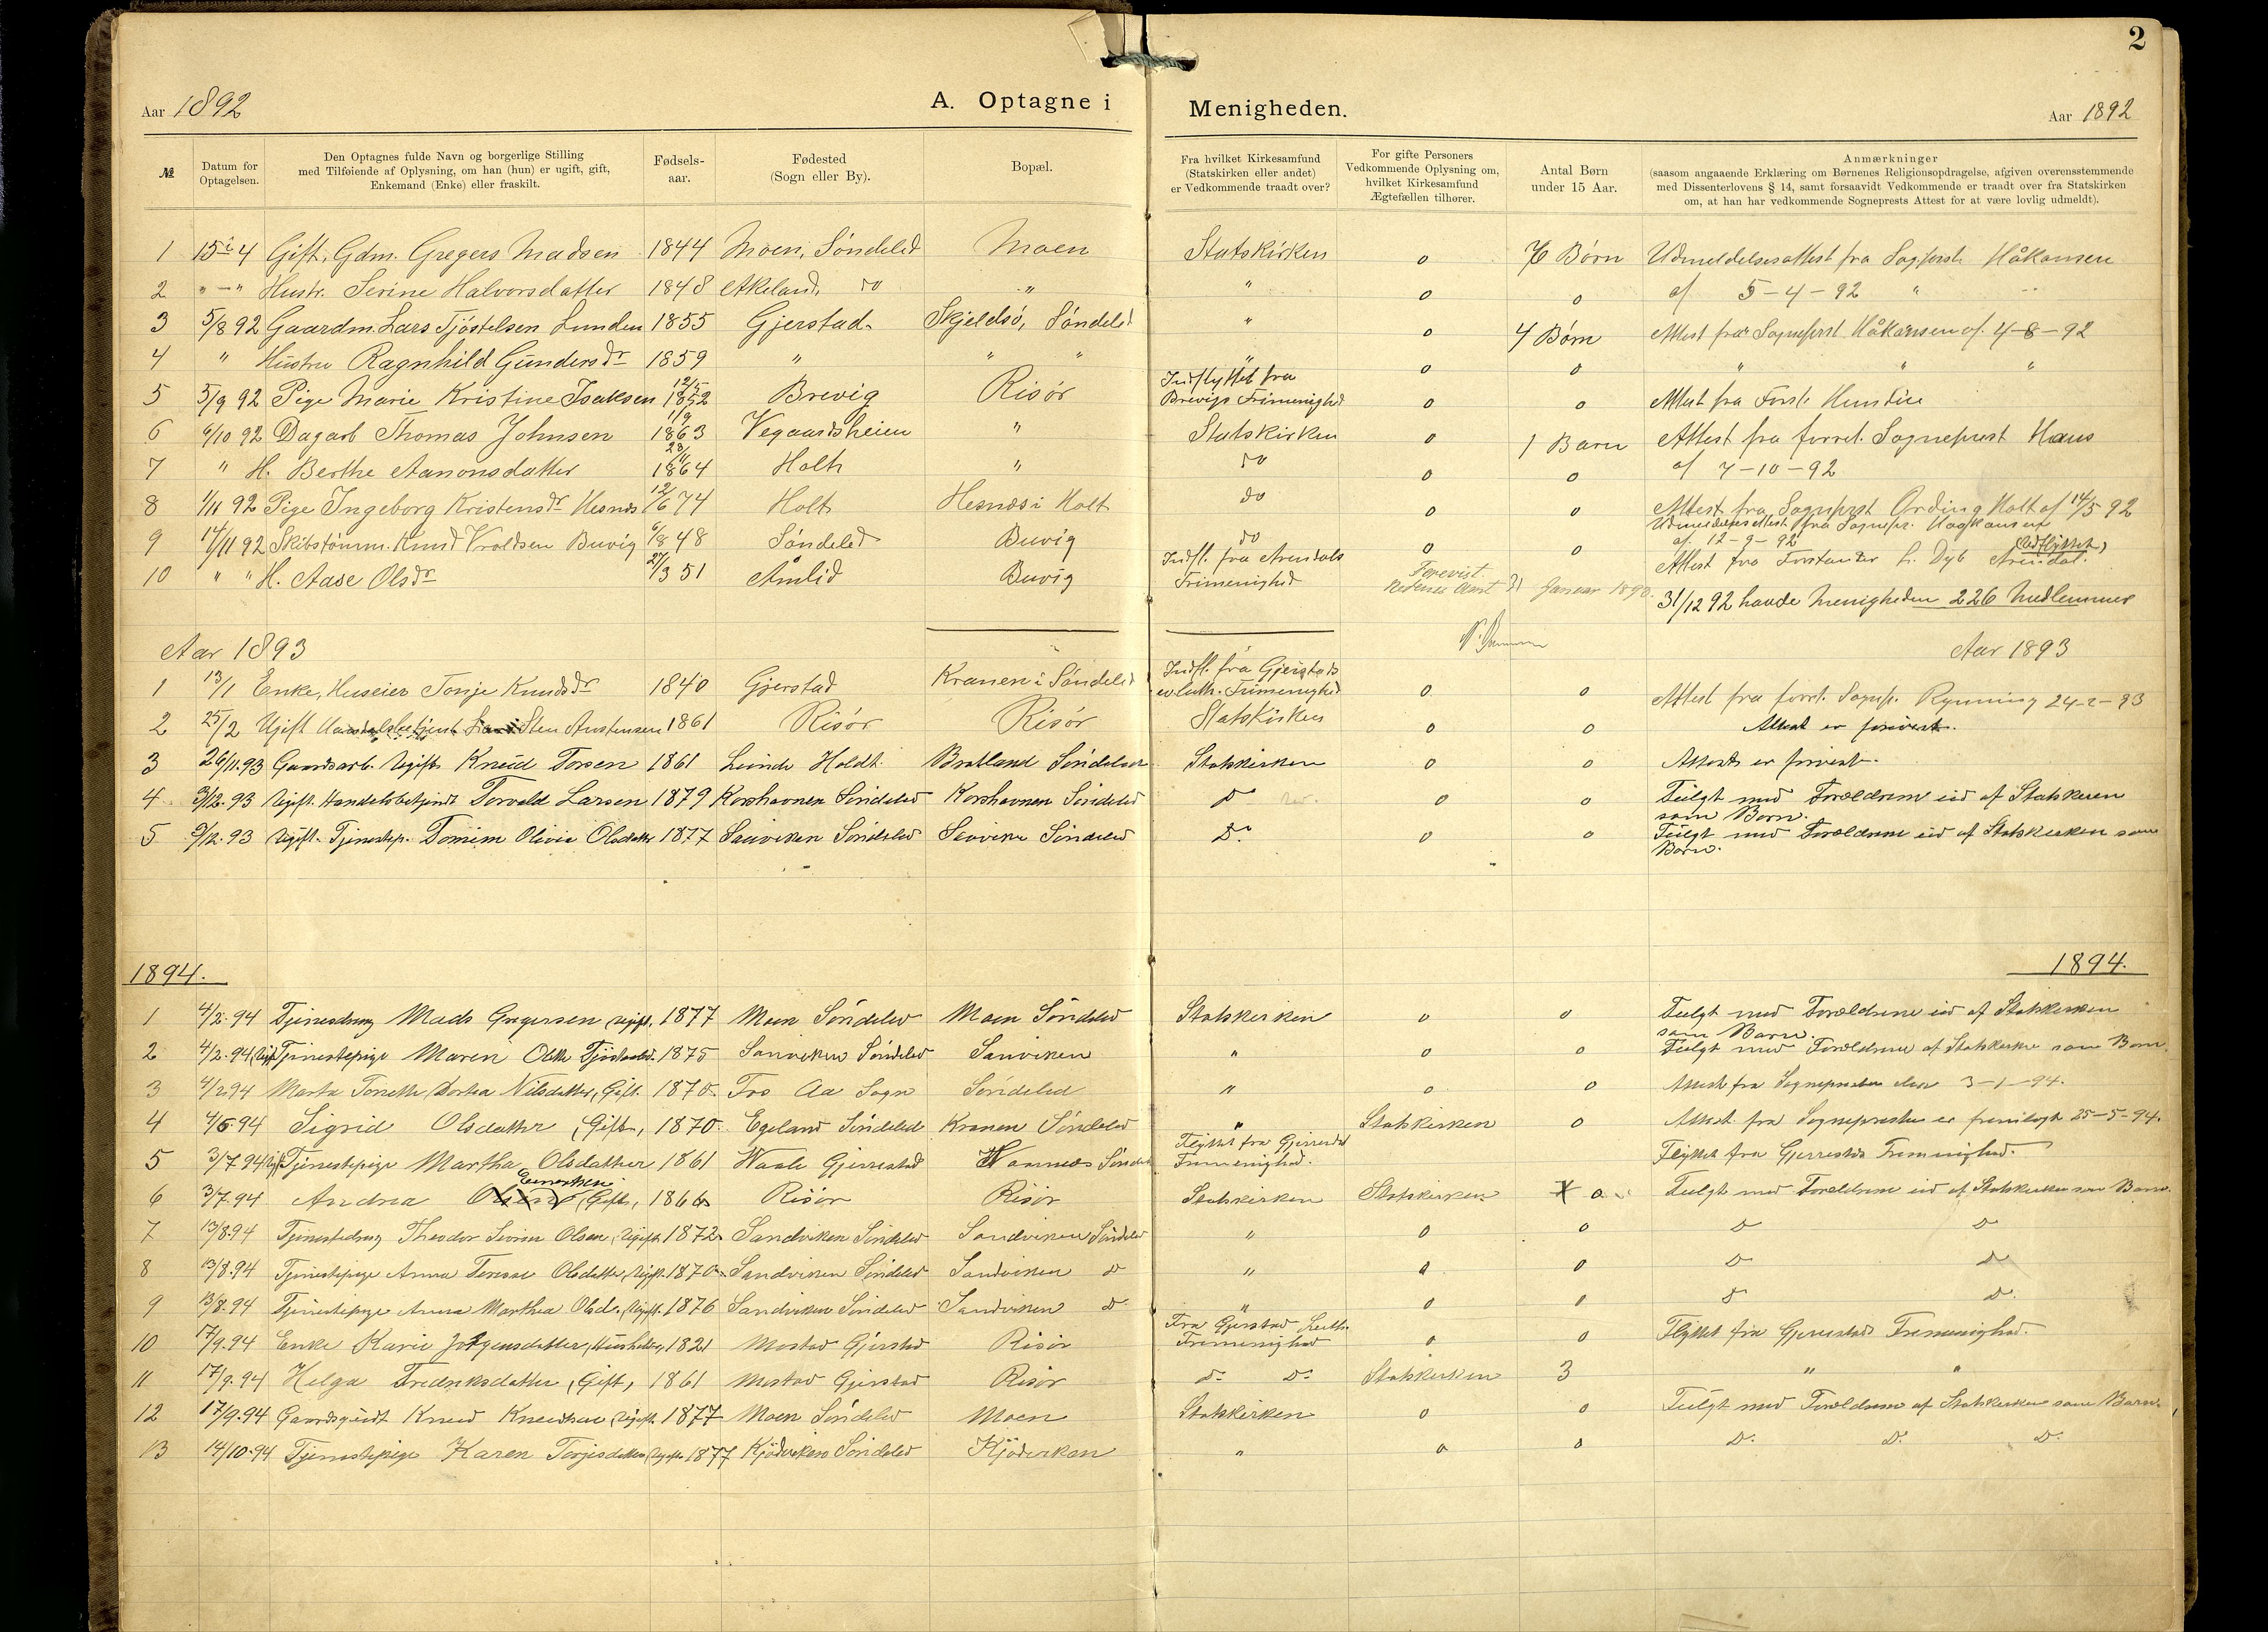 2
Aar 1892 A. Optagne i Menigheden. Aar 1892
№ Datum for Optagelsen. Den Optagnes fulde Navn og borgerlige Stilling med Tilføiende af Oplysning, om han (hun) er ugift, gift, Enkemand (Enke) eller fraskilt. Fødsels-aar. Fødested (Sogn eller By). Bopæl. Fra hvilket Kirkesamfund (Statskirken eller andet) er Vedkommende traadt over? For gifte Personers Vedkommende Oplysning om, hvilket Kirkesamfund Ægtefællen tilhører. Antal Børn under 15 Aar. Anmærkninger (saasom angaaende Erklæring om Børnenes Religionsopdragelse, afgiven overensstemmende med Dissenterlovens § 14, samt forsaavidt Vedkommende er traadt over fra Statskirken om, at han har vedkommende Sogneprests Attest for at være lovlig udmeldt).
1 15 4 Gift, Gdm. Gregers Madsen 1844 Moen, Söndeled Moen Statskirken 0 Børn Udmeldelsesattest fra Sogprst. Håkonsen
2 " - " Hustr. Serine Halvorsdatter 1848 Akeland, do " " 0 0 af 5-4-92 "
3 5/8 92 Gaardm. Lars Tjöstelsen Lunden 1855 Gjerstad. Skjeldsö, Söndeled " 0 4 Børn Attest fra Sogneprst Håkonsen af 4-8-92
4 " Hustru Ragnhild Gundersdr 1859 " " " " 0 0 " " "
5 5/9 92 Pige Marie Kristine Isaksen 12/5 1852 Brevig Risör Indflyttet fra Brevigs Frimenighed 0 0 Attest fra Forst.
6 6/10 92 Dagarb Thomas Johnsen 1/9 1863 Vegaardsheien " Statskirken 0 1 Barn Attest fra forret. Sogneprest
7 " H. Berthe Aanonsdatter 1864 Holt " do 0 0 af 7-10-92
8 1/11 92 Pige Ingeborg Kristensdr Hesnes 12/6 74 Holt Hesnes i Holt do 0 0 Attest fra Sogneprst Ording Holt af 14/5 92
9 14/11 92 Skibstömm. Knud Vroldsen Buvig 6/8 48 Söndeled Buvig do 0 0 Udmeldelsesattest fra Sognepr. Haakonsen af 12-9-92
10 " " H. Aase Olsdr 27/3 51 Åmlid Buvig Indfl. fra Arendals Frimenighed Attest fra Forstander Dyb Arendal. (Udflyttet)
Forevist. Nedenes Amt 31 Januar 1893. 31/12 92 havde Menigheden 226 Medlemmer
Aar 1893 Aar 1893
1 13/1 Enke, Huseier Tonje Knudsdr 1840 Gjerstad Kranen i Söndeled Indfl. fra Gjerstads ev luth. Frimenighed 0 0 Attest fra forst. Sognep. Rynning 24-2-93
2 25/2 Ugift Sten Austensen 1861 Risör Risör Statskirken 0 0 Attest er forevist.
3 26/11.93 Gaardsarb. Ugift Knud Torsen 1861 Holdt Bratland Söndeled Statskirken 0 0 Attest er forevist.
4 3/12.93 Ugift. Handelsbetjent Torvald Larsen 1879 Korshavnen Söndeled Korshavnen Söndeled Do 0 0 Fulgt med Forældrene ud af Statskirken som Barn.
5 9/12.93 Ugift. Tjenestep. Tomine Olivia Olsdatter 1877 Sanviken Söndeled Sanviken Söndeled Do. 0 0 Fulgt med Forældrene ud af Statskirken som Barn.
1894. 1894.
1 4/2.94 Tjenesdreng Mads Gregersen, ugift, 1877 Moen Söndeled Moen Söndeled Statskirken 0 0 Fulgt med Forældrene ud af Statskirken som Barn.
2 4/2.94 Ugift Tjenestepige Maren Olette 1875 Sanviken Söndeled Sanviken " 0 0 Fulgt med Forældrene af Statskirken som Barn.
3 4/2 94 Marta Nilsdatter, Gift. 1870. Aa Sogn Söndeled " 0 0 Attest fra Sognepresten 3-1-94.
4 4/6.94 Sigrid Olsdatter, Gift, 1870. Egeland Söndeled Kranen Söndeled " Statskirken 0 Attest fra Sognepresten er fremlagt 25-5-94.
5 3/7.94 Ugift Tjenestepige Martha Olsdatter 1861 Gjerrestad Söndeled Flyttet fra Gjerrestad Frimenighed. Flyttet fra Gjerrestads Frimenighed.
6 3/7.94 Andrea (Gift, 1866 Risör Risör Statskirken Statskirken 0 Fulgt med Forældrene ud af Statskirken som Barn.
7 13/8.94 Tjenestedreng Theodor Severin Olsen, Ugift. 1872. Sandviken Söndeled Sandviken Söndeled " 0 0 Do Do
8 13/8.94 Tjenestepige Anna Terese Olsdatter, Ugift. 1870. Sandviken Söndeled Sandviken do " 0 0 Do Do
9 13/8.94 Tjenestepige Anna Martha Olsd., Ugift. 1876 Sandviken Söndeled Sandviken Do " 0 0 Do Do.
10 17/9.94 Enke Karie Jörgensdatter, 1821 Mostad Gjerstad Risör Fra Gjerstad Luth. Frimenighed 0 0 Flyttet fra Gjerrestads Frimenighed.
11 17/9.94 Helga Fredriksdatter, Gift, 1861 Mostad Gjerstad Risör Do. Do. Statskirken 3 " "
12 17/9.94 Gaardsgudt Knud Knudsen Ugift. 1877 Moen Söndeled Moen Statskirken 0 0 Fulgt med Forældrene af Statskirken som Barn.
13 14/10.94 Tjenestepige Karen Terjesdatter, Ugift. 1877 Kjödviken Söndeled Kjödviken " 0 0 Do. Do. Do.